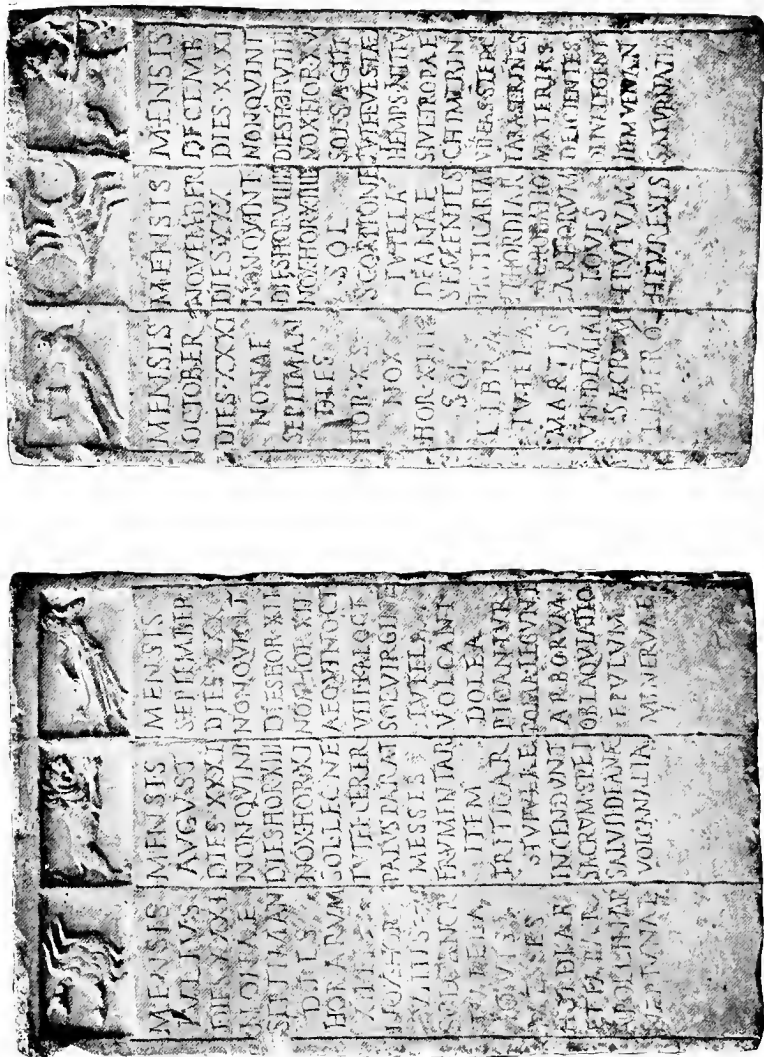 MENSIS
IVLIVS
DIES·XXXI
NONAE
SEPTIMAN
DIES
HORARVM
NOX·HOR
TVTELA
IOVIS
MESSES
ET·FABAR
APOLLINAR
NEPTVNAL
MENSIS
AVGVST
DIES·XXXI
NON·QVINT
DIES·HOR·XIII
NOX·HOR·XI
SOL·LEONE
TVTEL·CERER
PALVS·PARAT
MESSES
FRVMENTAR
ITEM
TRITICAR
STVPVLAE
INCENDVNT
SACRVM·SPEI
SALVTI·DEANAE
VOLCANALIA
MENSIS
SEPTEMBER
DIES·XXX
NON·QVINT
DIES·HOR·XII
NOX·HOR·XII
AEQVINOCT
VIII·KAL·OCT
SOL·VIRGINE
TVTELA
VOLCANI
DOLEA
PICANTVR
POMA·LEGVNT
ARBORVM
OBLAQVIATIO
EPVLVM
MINERVAE
MENSIS
OCTOBER
DIES·XXXI
NONAE
SEPTIMAN
DIES
HOR·X·S
NOX
HOR·XIII
SOL
LIBRA
TVTELA
MARTIS
VINDEMIAE
SACRVM
LIBERO
MENSIS
NOVEMBER
DIES·XXX
NON·QVINT
DIES·HOR·VIIII
NOX·HOR·XIIII
SOL
SCORPIONE
TVTELA
DEANAE
SEMENTES
TRITICARIAE
ET·HORDIAR
SCROBATIO
ARBORVM
IOVIS
EPVLVM
HEVRESIS
MENSIS
DECEMB
DIES·XXXI
NON·QVINT
DIES·HOR·VIIII
NOX·HOR·XV
SOL·SAGIT
TVTEL·VESTAE
HIEMPS·INITIV
SIVE·TROPAE
CHIMERIN
VINEAS·STERC
FABA·SERENTES
MATERIAS
DEICIENTES
OLIVA·LEGENT
ITEM·VENAN
SATVRNALIA